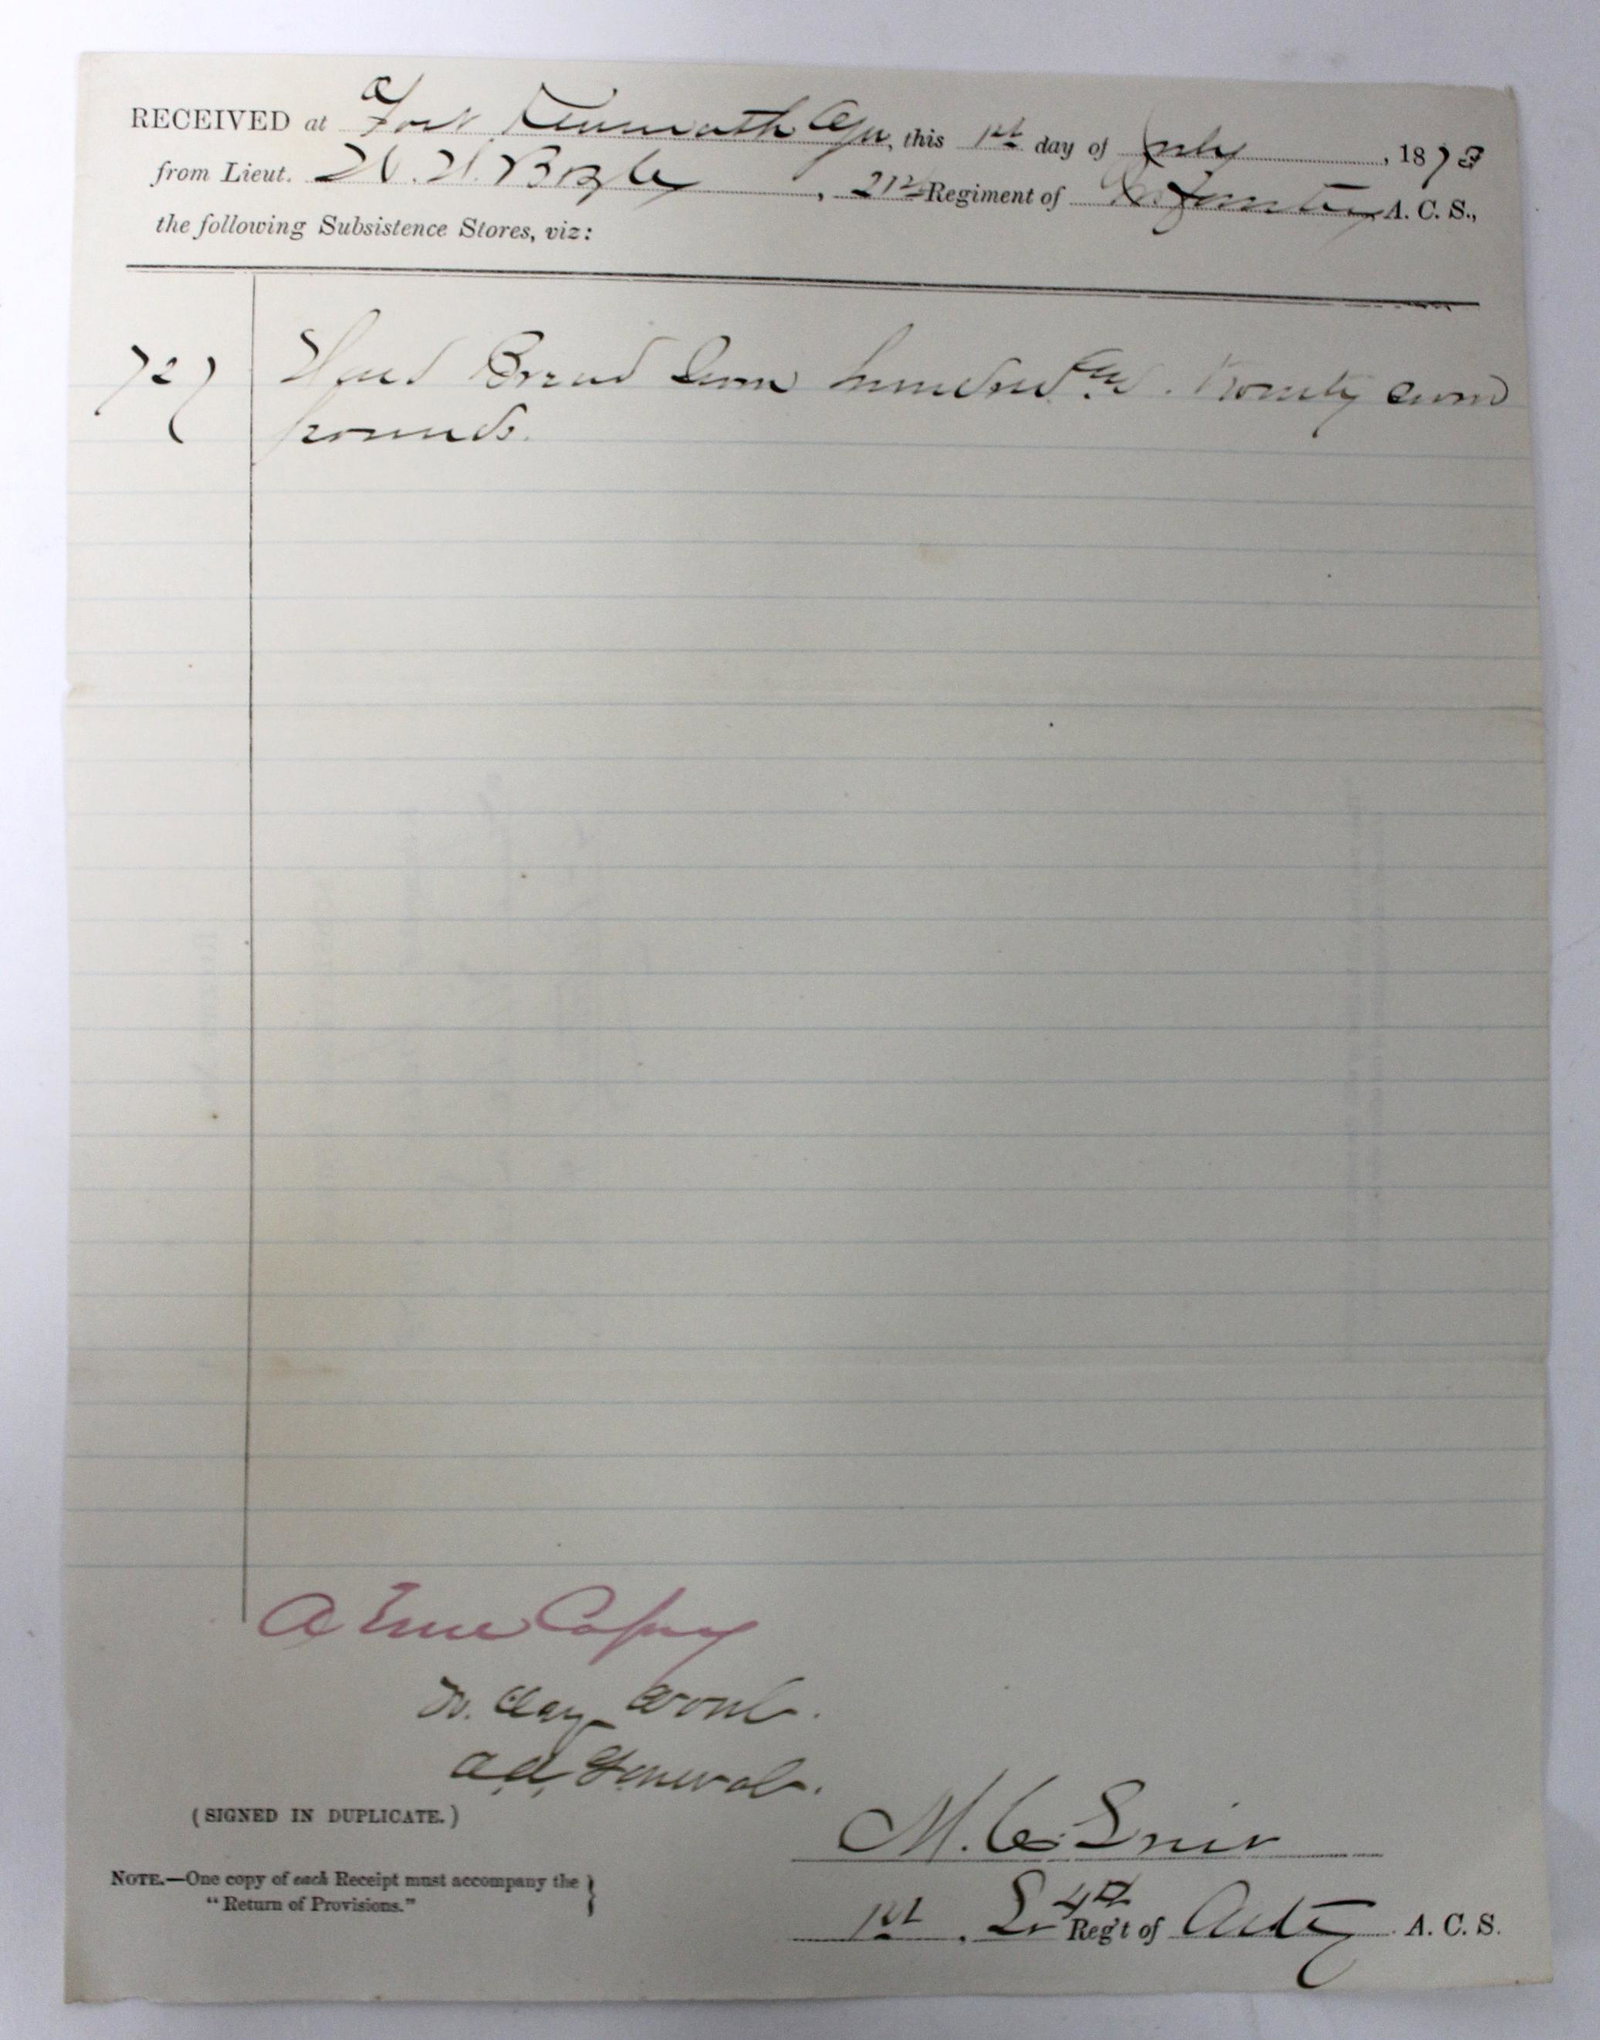 RECEIVED at Fort Klamath Ogn, this 1st day of July, 1873
from Lieut. W. H. Boyle, 21st Regiment of Infantry A. C. S.,
the following Subsistence Stores, viz:
727 Hard Bread Seven hundred and Twenty seven
pounds.
A True Copy
H. Clay Wood.
A. A. General.
(SIGNED IN DUPLICATE.)
M. C.
NOTE.—One copy of each Receipt must accompany the
"Return of Provisions."
1st Lt 4th Reg't of Arty A. C. S.